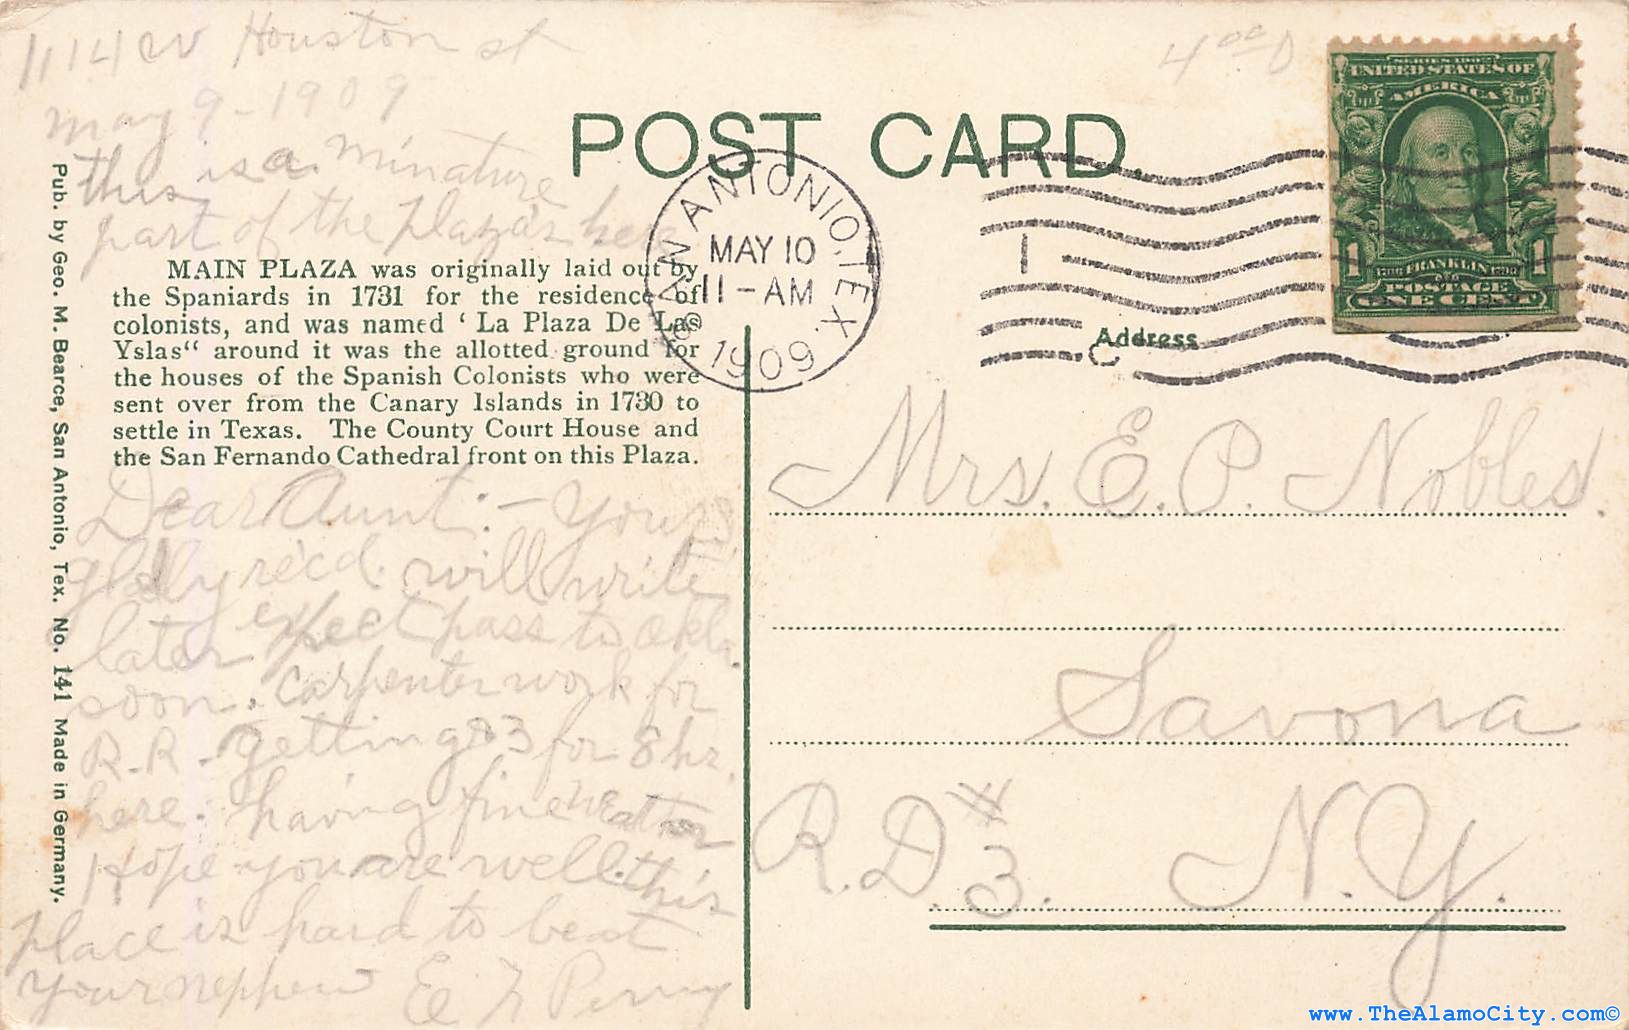 1114 W Houston st
may 9-1909
this is a minature
part of the plaza's here
4⁰⁰ D
POST CARD.
SAN ANTONIO, TEX.
MAY 10
11-AM
1909
1
SERIES 1902
UNITED STATES OF
AMERICA
1 FRANKLIN 1
POSTAGE
ONE CENT
Pub. by Geo. M. Bearce, San Antonio, Tex. No. 141 Made in Germany.
MAIN PLAZA was originally laid out by
the Spaniards in 1731 for the residence of
colonists, and was named ‘ La Plaza De Las
Yslas“ around it was the allotted ground for
the houses of the Spanish Colonists who were
sent over from the Canary Islands in 1730 to
settle in Texas. The County Court House and
the San Fernando Cathedral front on this Plaza.
Dear Aunt:- Yours
gladly rec'd. will write
later expect pass to Okla.
soon. Carpenter work for
R.R. getting $3 for 8 hr.
here. having fine weather
Hope you are well. this
place is hard to beat
your nephew E F Perry
Address
Mrs. E. P. Nobles.
Savona
R.D. # 3. N.Y.
www.TheAlamoCity.com©